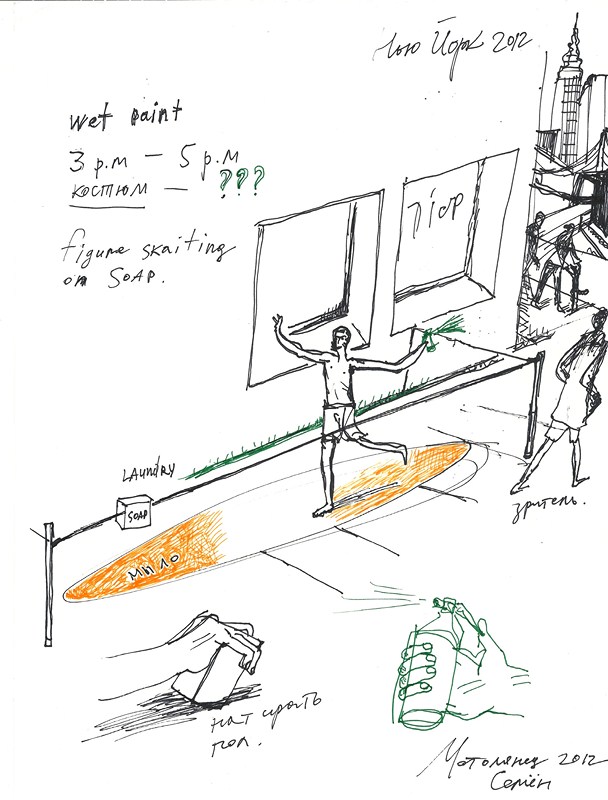 Нью Йорк 2012
wet paint
3 p.m — 5 p.m
костюм — ???
figure skaiting
on SOAP.
LAUNDRY
SOAP
мыло
зритель.
натирать
пол.
2012
Семён